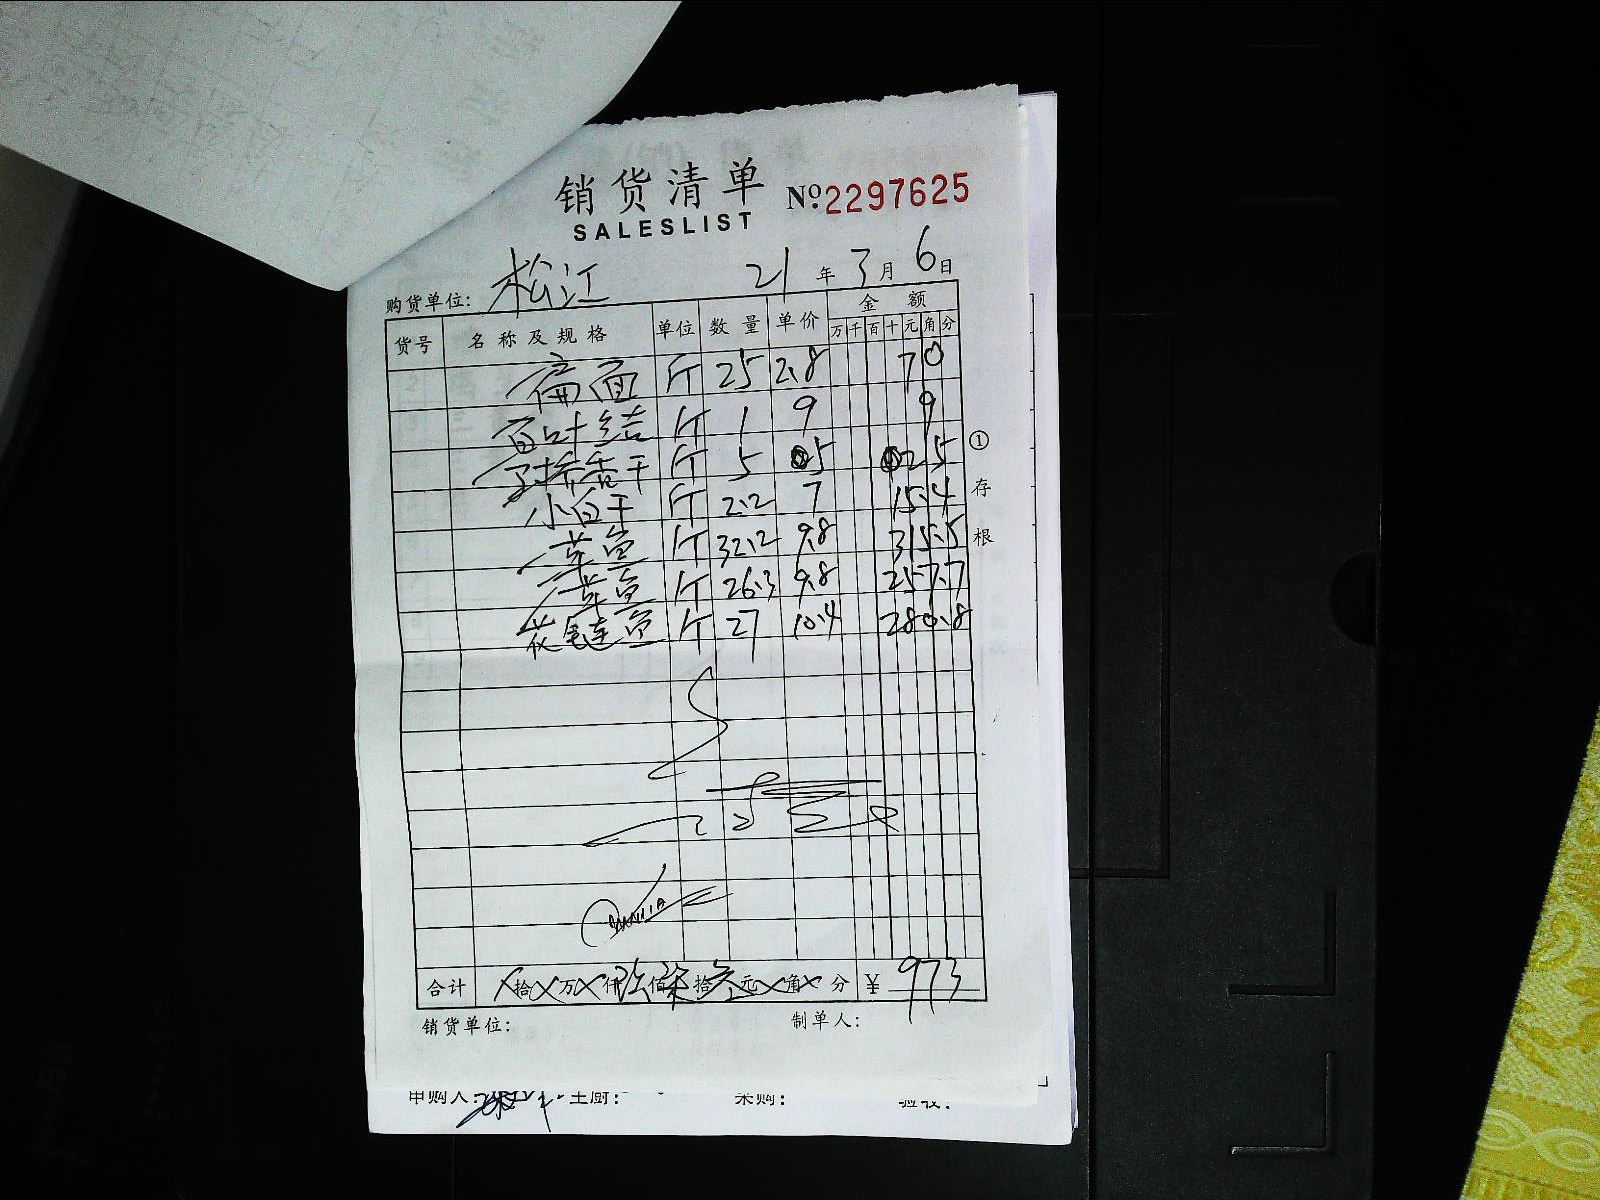 销货清单 №2297625
SALESLIST
购货单位: 松江 21 年 3 月 6 日
货号 名称及规格 单位 数量 单价 金额
万 千 百 十 元 角 分
扁面 斤 25 2.8 70
百叶结 斤 1 9 9
香干 斤 5 5 25
小白干 斤 2.2 7 15.4
草鱼 斤 32.2 9.8 315.5
草鱼 斤 26.3 9.8 257.7
花鲢鱼 斤 27 10.4 280.8
① 存根
合计 拾 万 仟 玖 佰 柒 拾 叁 元 角 分 ¥ 973
销货单位: 制单人:
申购人: 主厨: 采购: 验收: